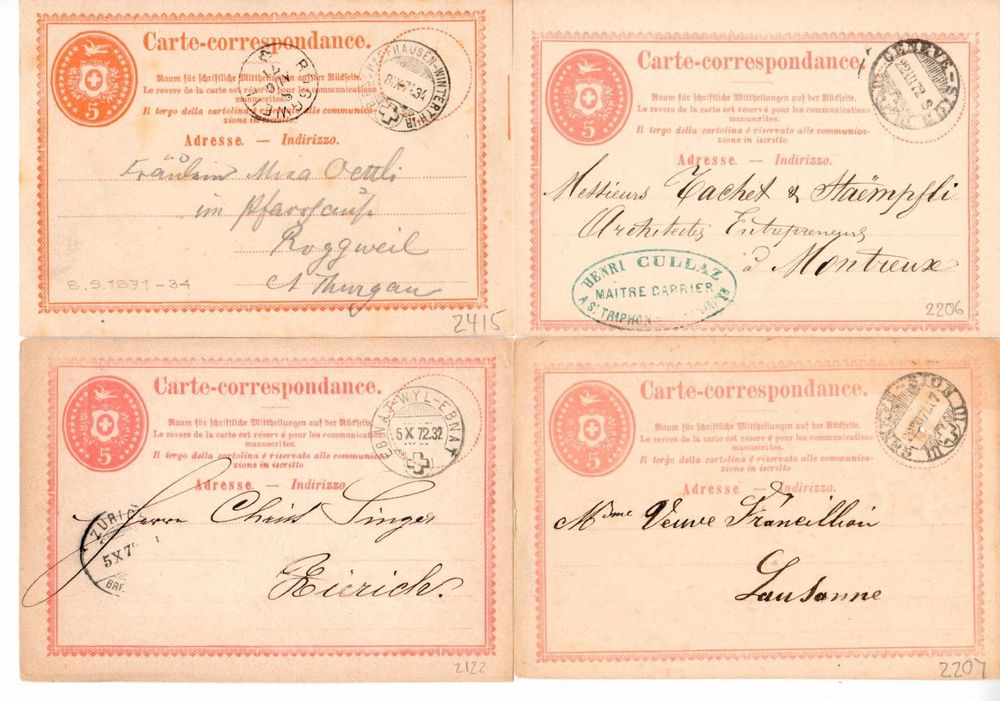 Carte-correspondance.
5
Raum für schriftliche Mittheilungen auf der Rückseite.
Le revers de la carte est réservé pour les communications
manuscrites.
Il tergo della cartolina è riservato alle communicazioni
in iscritto
Adresse. — Indirizzo.
SCHAFFHAUSEN-WINTERTHUR
Fräulein Mina Oettli
im Pfarrhaus
Roggweil
Ct Thurgau
8.9.1871-34
2415
Carte-correspondance.
5
Raum für schriftliche Mittheilungen auf der Rückseite.
Le revers de la carte est réservé pour les communications
manuscrites.
Il tergo della cartolina è riservato alle communicazioni
in iscritto
Adresse. — Indirizzo.
GENEVE-SION
Messieurs Tachet & Staëmpfli
Architectes Entrepreneurs
à Montreux
HENRI CULLAZ
MAITRE CARRIER
A ST. TRIPHON
2206
Carte-correspondance.
5
Raum für schriftliche Mittheilungen auf der Rückseite.
Le revers de la carte est réservé pour les communications
manuscrites.
Il tergo della cartolina è riservato alle communicazioni
in iscritto
Adresse. — Indirizzo.
EBNAT-WYL-EBNAT
5 X 72.32
ZÜRICH
5 X 7
BRF.
Herrn Christ Singer
Zürich.
2122
Carte-correspondance.
5
Raum für schriftliche Mittheilungen auf der Rückseite.
Le revers de la carte est réservé pour les communications
manuscrites.
Il tergo della cartolina è riservato alle communicazioni
in iscritto
Adresse. — Indirizzo.
GENEVE-SION III
Mdme Veuve Francillion
Lausanne
2207